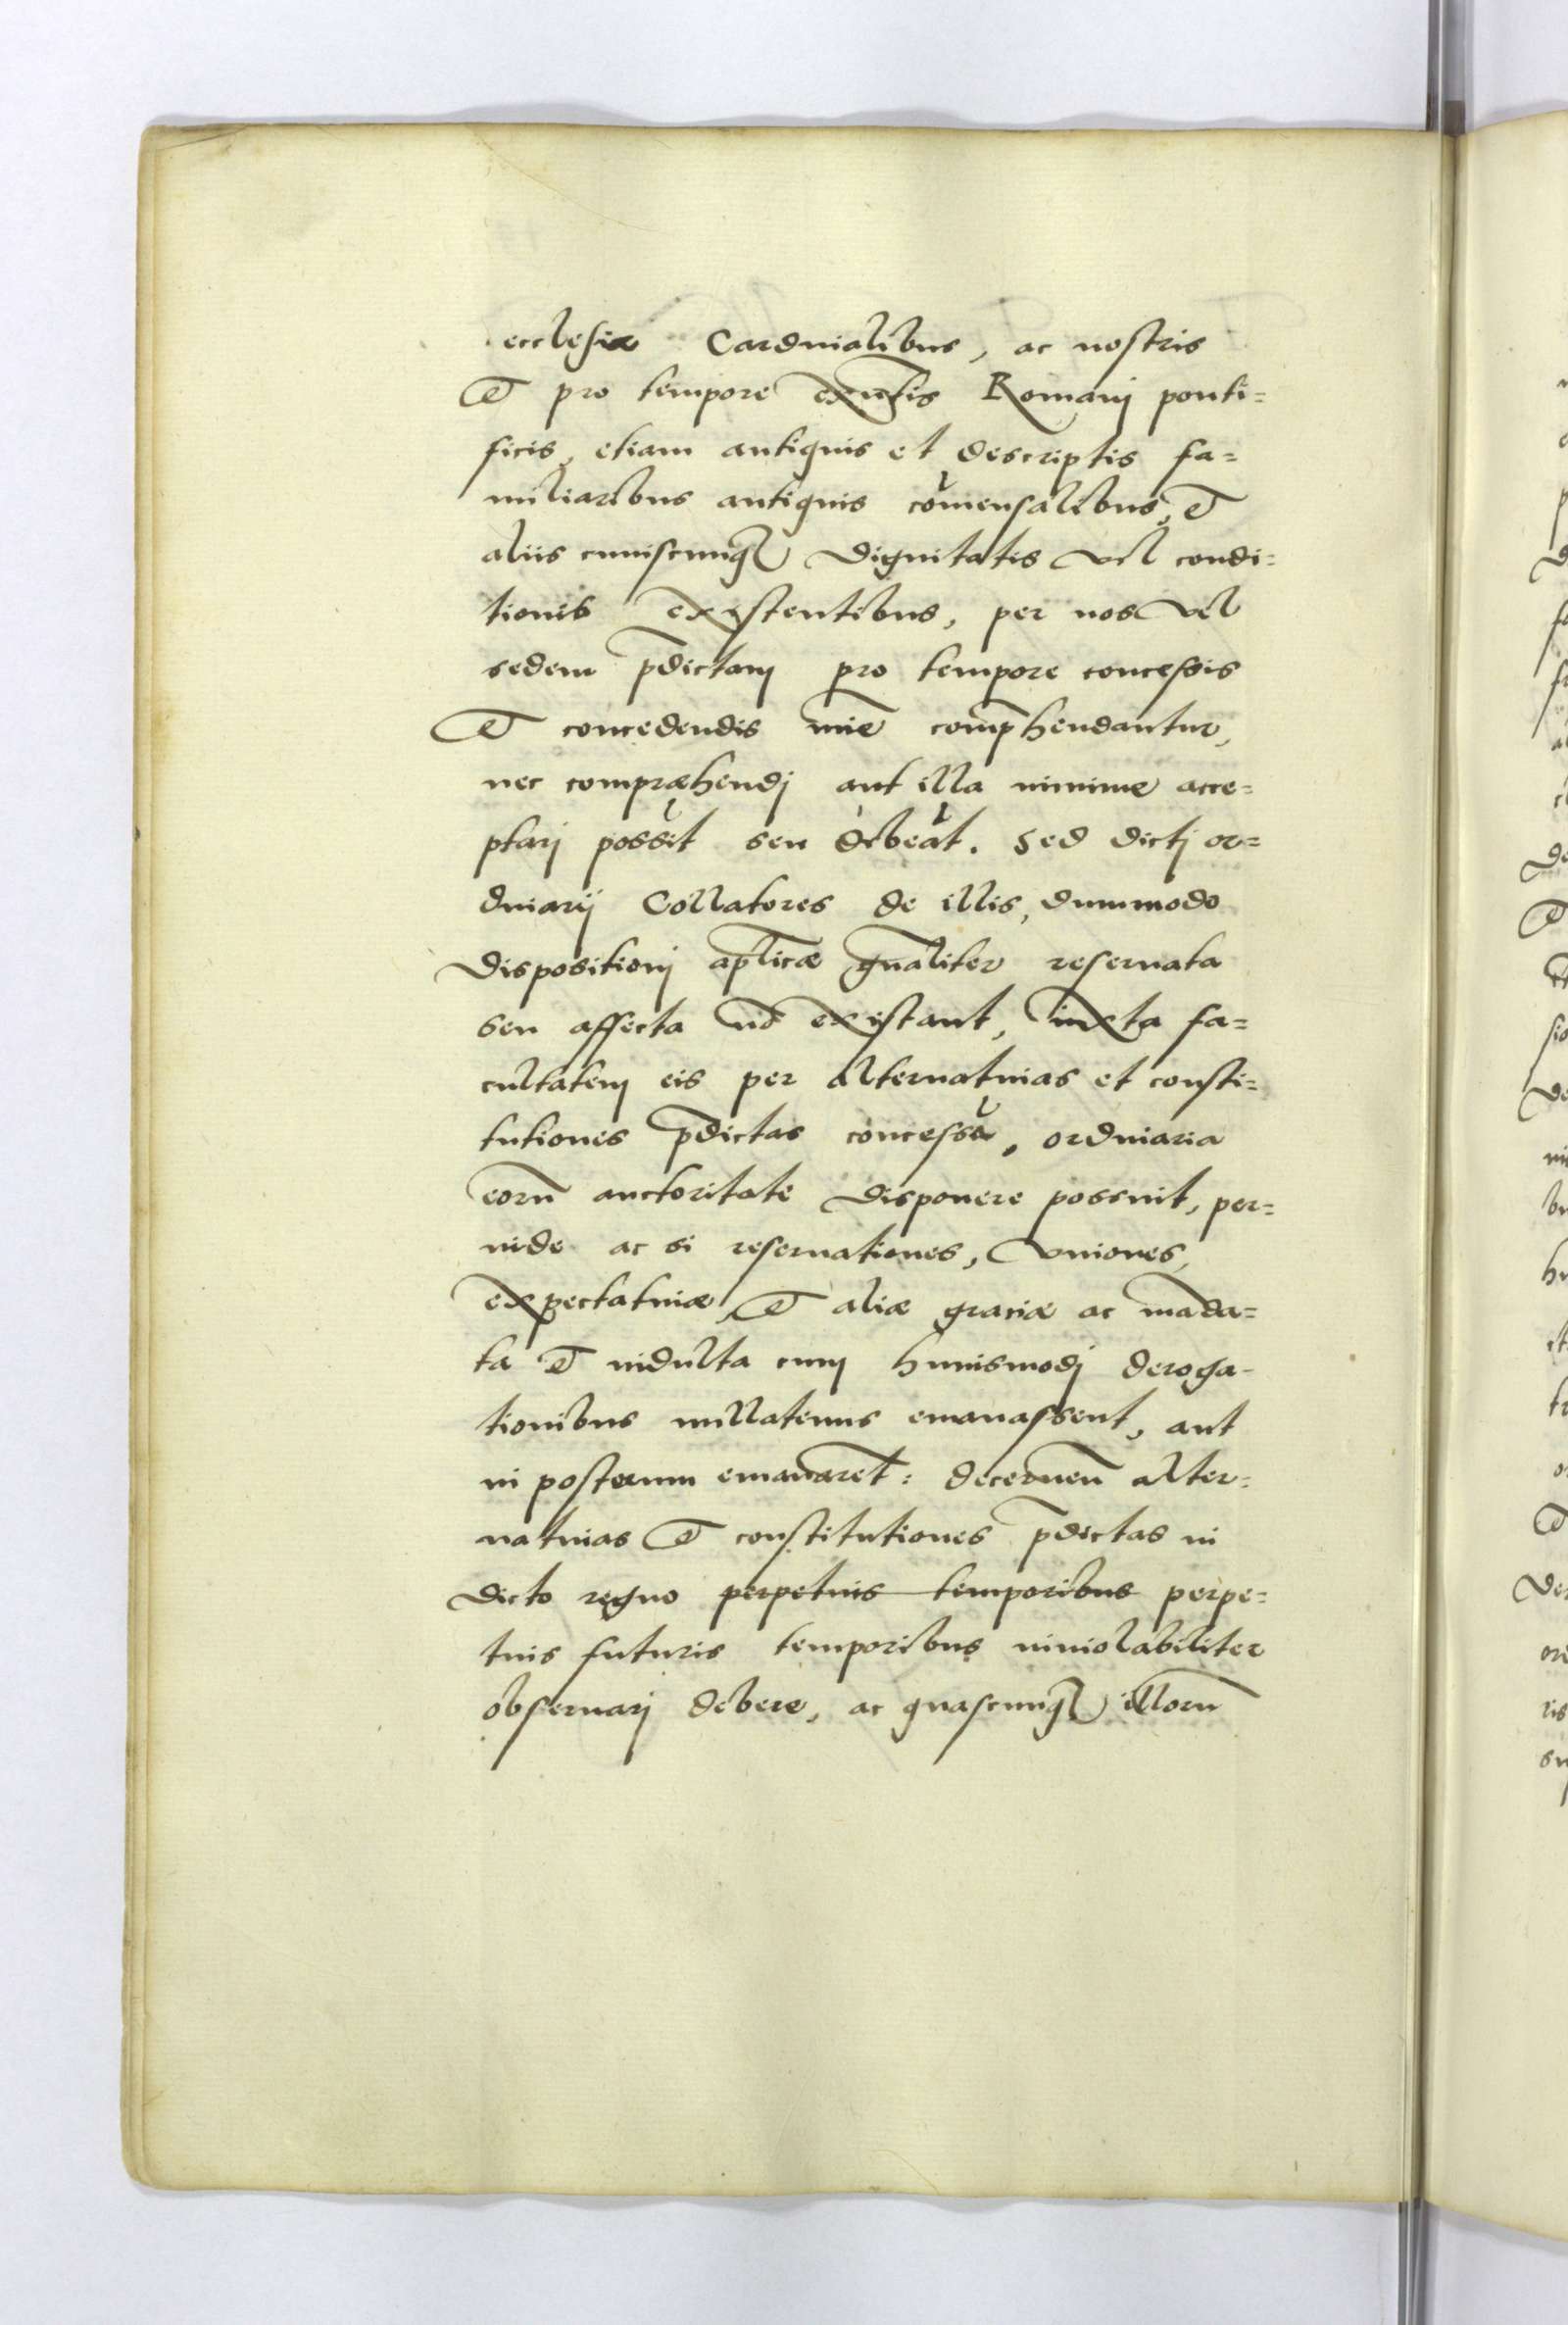 ecclesiæ Cardinalibus, ac nostris
Et pro tempore exñtis Romanj ponti=
ficis, etiam antiquis et descriptis fa=
miliaribus antiquis cõmensalibus, Et
aliis cuiuscunq₃ dignitatis vel condi=
tionis existentibus, per nos vel
sedem p̄dictam pro tempore concessis
Et concedendis mĩe comp̄hendantur,
nec compræhendj aut illa minime acce=
ptarj possĩt seu debeãt. Sed dictj or=
dinarij Collatores de illis, dummodo
dispositionj aplicæ gñaliter reseruata
seu affecta nõ existant, iuxta fa=
cultatem eis per alternatiuas et consti=
tutiones p̄dictas concessã, ordinaria
eorũ auctoritate disponere possint, per=
inde ac si reseruationes, vniones,
expectatiuæ, Et aliæ graciæ ac mãda=
ta Et indulta cum huiusmodj deroga-
tionibus nullatenus emanassent, aut
in posterum emanarẽt: decerneñ alter=
natiuas Et constitutiones p̄dictas in
dicto regno perpetuis temporibus perpe=
tuis futuris temporibus inuiolabiliter
obseruarj debere, ac quascunq₃ illorũ